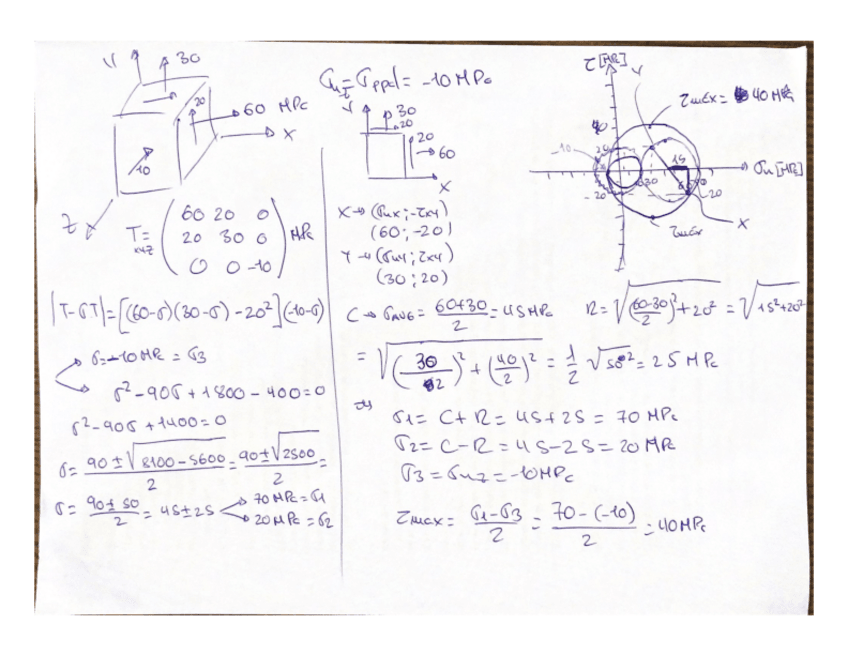 Y 30
20
60 MPa
X
10
Z
T = xyz ( 60 20 0
20 30 0
0 0 -10 ) MPa
|T-σI| = [(60-σ)(30-σ) - 20²](-10-σ)
σ = -10 MPa = σ3
σ² - 90σ + 1800 - 400 = 0
σ² - 90σ + 1400 = 0
σ = 90 ± √8100 - 5600 / 2 = 90 ± √2500 / 2 =
σ = 90 ± 50 / 2 = 45 ± 25 → 70 MPa = σ1
→ 20 MPa = σ2
σnz = σppal = -10 MPa
Y 30
20
20
60
X
X → (σnx; -τxy)
(60; -20)
Y → (σny; τxy)
(30; 20)
C → σAVG = 60+30 / 2 = 45 MPa R = √(60-30 / 2)² + 20² = √15² + 20²
= √(30 / 2)² + (40 / 2)² = 1/2 √50² = 25 MPa
⇒ σ1 = C + R = 45 + 25 = 70 MPa
σ2 = C - R = 45 - 25 = 20 MPa
σ3 = σnz = -10 MPa
τmax = σ1 - σ3 / 2 = 70 - (-10) / 2 = 40 MPa
τ [MPa] Y
τmáx = 40 MPa
40
20
-10
15
σn [MPa]
30
60
-20
-20
τmáx
X